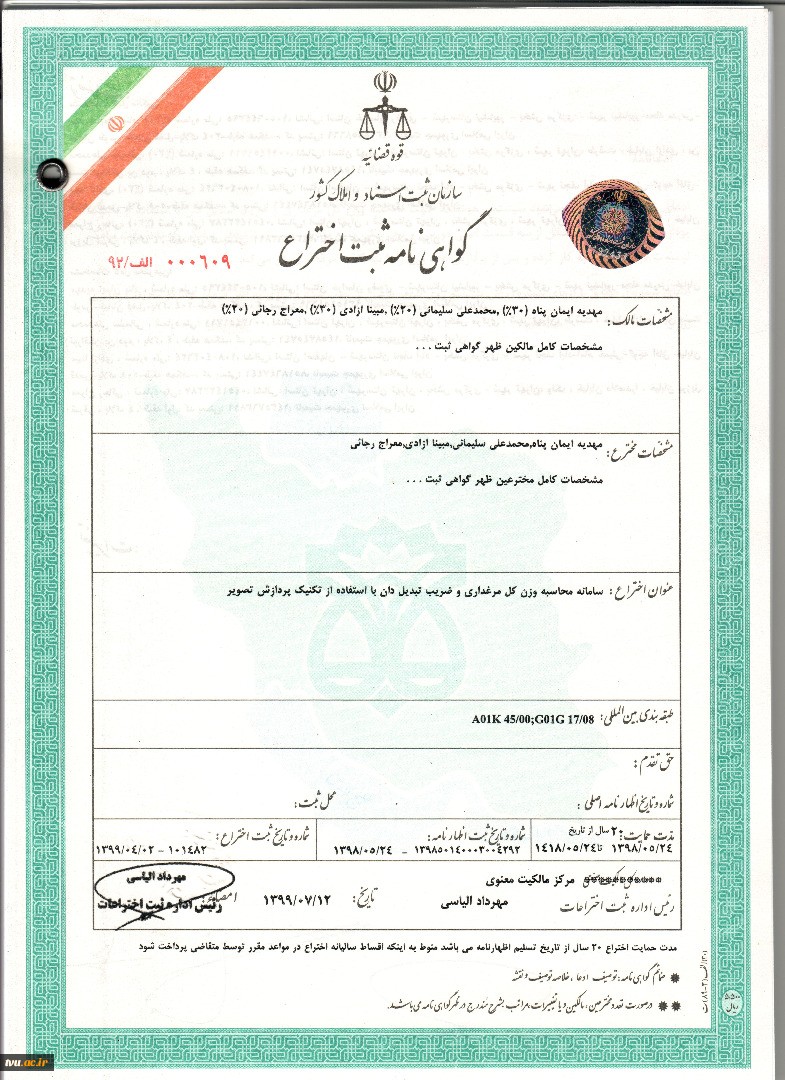 قوه قضائیه
سازمان ثبت اسناد و املاک کشور
گواهی نامه ثبت اختراع
۰۰۰۶۰۹ الف/۹۲
مشخصات مالک: مهدیه ایمان پناه (۳۰٪) ,محمدعلی سلیمانی (۲۰٪) ,مبینا ازادی (۳۰٪) ,معراج رجائی (۲۰٪)
مشخصات کامل مالکین ظهر گواهی ثبت . . .
مشخصات مخترع: مهدیه ایمان پناه,محمدعلی سلیمانی,مبینا ازادی,معراج رجائی
مشخصات کامل مخترعین ظهر گواهی ثبت . . .
عنوان اختراع: سامانه محاسبه وزن کل مرغداری و ضریب تبدیل دان با استفاده از تکنیک پردازش تصویر
طبقه بندی بین المللی: A01K 45/00;G01G 17/08
حق تقدم:
شماره و تاریخ اظهار نامه اصلی: محل ثبت:
مدت حمایت: ۲۰ سال از تاریخ شماره و تاریخ ثبت اظهارنامه: شماره و تاریخ ثبت اختراع:
۱۳۹۸/۰۵/۲۴ تا ۱۴۱۸/۰۵/۲۴ ۱۳۹۸۵۰۱۴۰۰۰۳۰۰۴۲۹۲ - ۱۳۹۸/۰۵/۲۴ ۱۰۱۴۸۲ - ۱۳۹۹/۰۴/۰۲
مرکز مالکیت معنوی مهرداد الیاسی
رئیس اداره ثبت اختراعات مهرداد الیاسی تاریخ: ۱۳۹۹/۰۷/۱۲ امضاء رئیس اداره ثبت اختراعات
مدت حمایت اختراع ۲۰ سال از تاریخ تسلیم اظهارنامه می باشد منوط به اینکه اقساط سالیانه اختراع در مواعد مقرر توسط متقاضی پرداخت شود
✸ ضمائم گواهی نامه: توصیف، ادعا، خلاصه توصیف و نقشه
✸ ✸ درصورت تعدد مخترعین، مالکین و یا تغییرات، مراتب بشرح مندرج در ظهر گواهی نامه می باشد.
۵۵۰۰ ریال
tvu.ac.ir